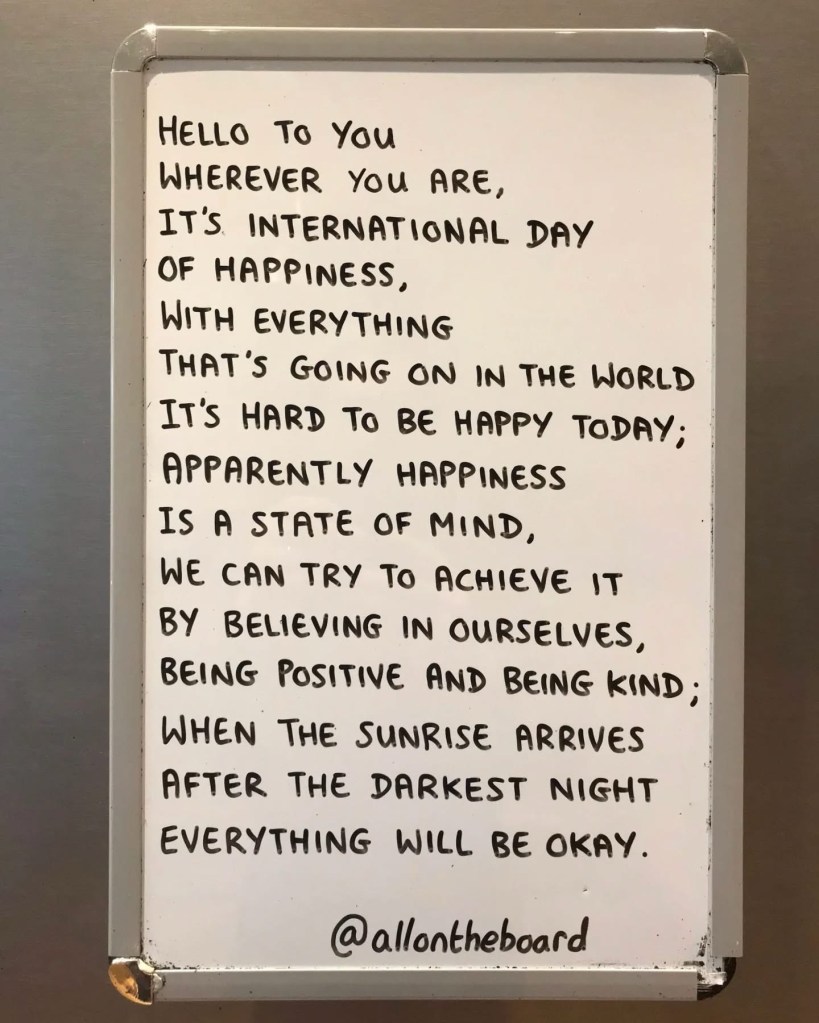 HELLO TO YOU
WHEREVER YOU ARE,
IT'S INTERNATIONAL DAY
OF HAPPINESS,
WITH EVERYTHING
THAT'S GOING ON IN THE WORLD
IT'S HARD TO BE HAPPY TODAY;
APPARENTLY HAPPINESS
IS A STATE OF MIND,
WE CAN TRY TO ACHIEVE IT
BY BELIEVING IN OURSELVES,
BEING POSITIVE AND BEING KIND;
WHEN THE SUNRISE ARRIVES
AFTER THE DARKEST NIGHT
EVERYTHING WILL BE OKAY.
@allontheboard